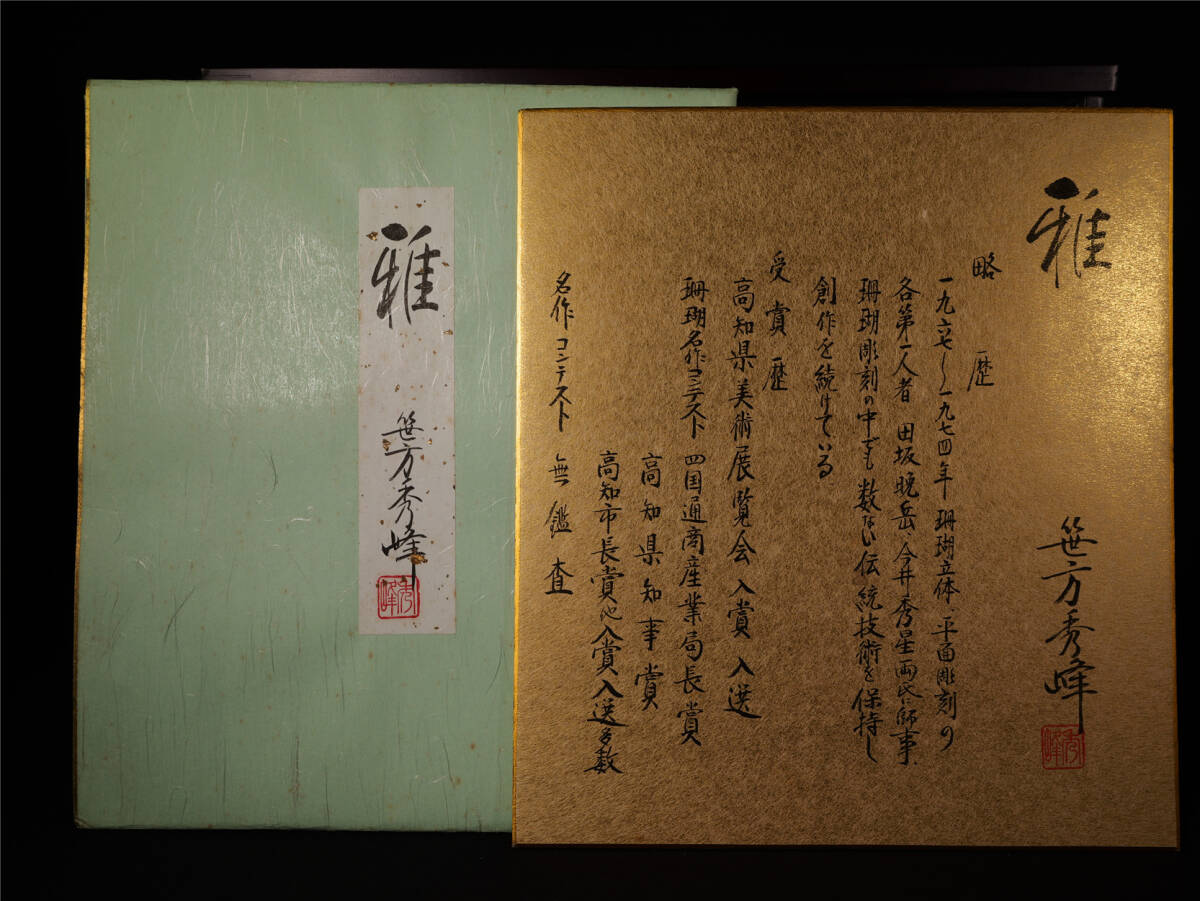 雅
笹方秀峰
秀峰
雅
笹方秀峰
秀峰
略歴
一九六七〜一九七四年 珊瑚立体、平面彫刻の
各第一人者 田坂晩岳、今井秀星両氏に師事、
珊瑚彫刻の中でも数ない伝統技術を保持し
創作を続けている
受賞歴
高知県美術展覧会入賞入選
珊瑚名作コンテスト 四国通商産業局長賞
高知県知事賞
高知市長賞他入賞入選多数
名作コンテスト 無鑑査